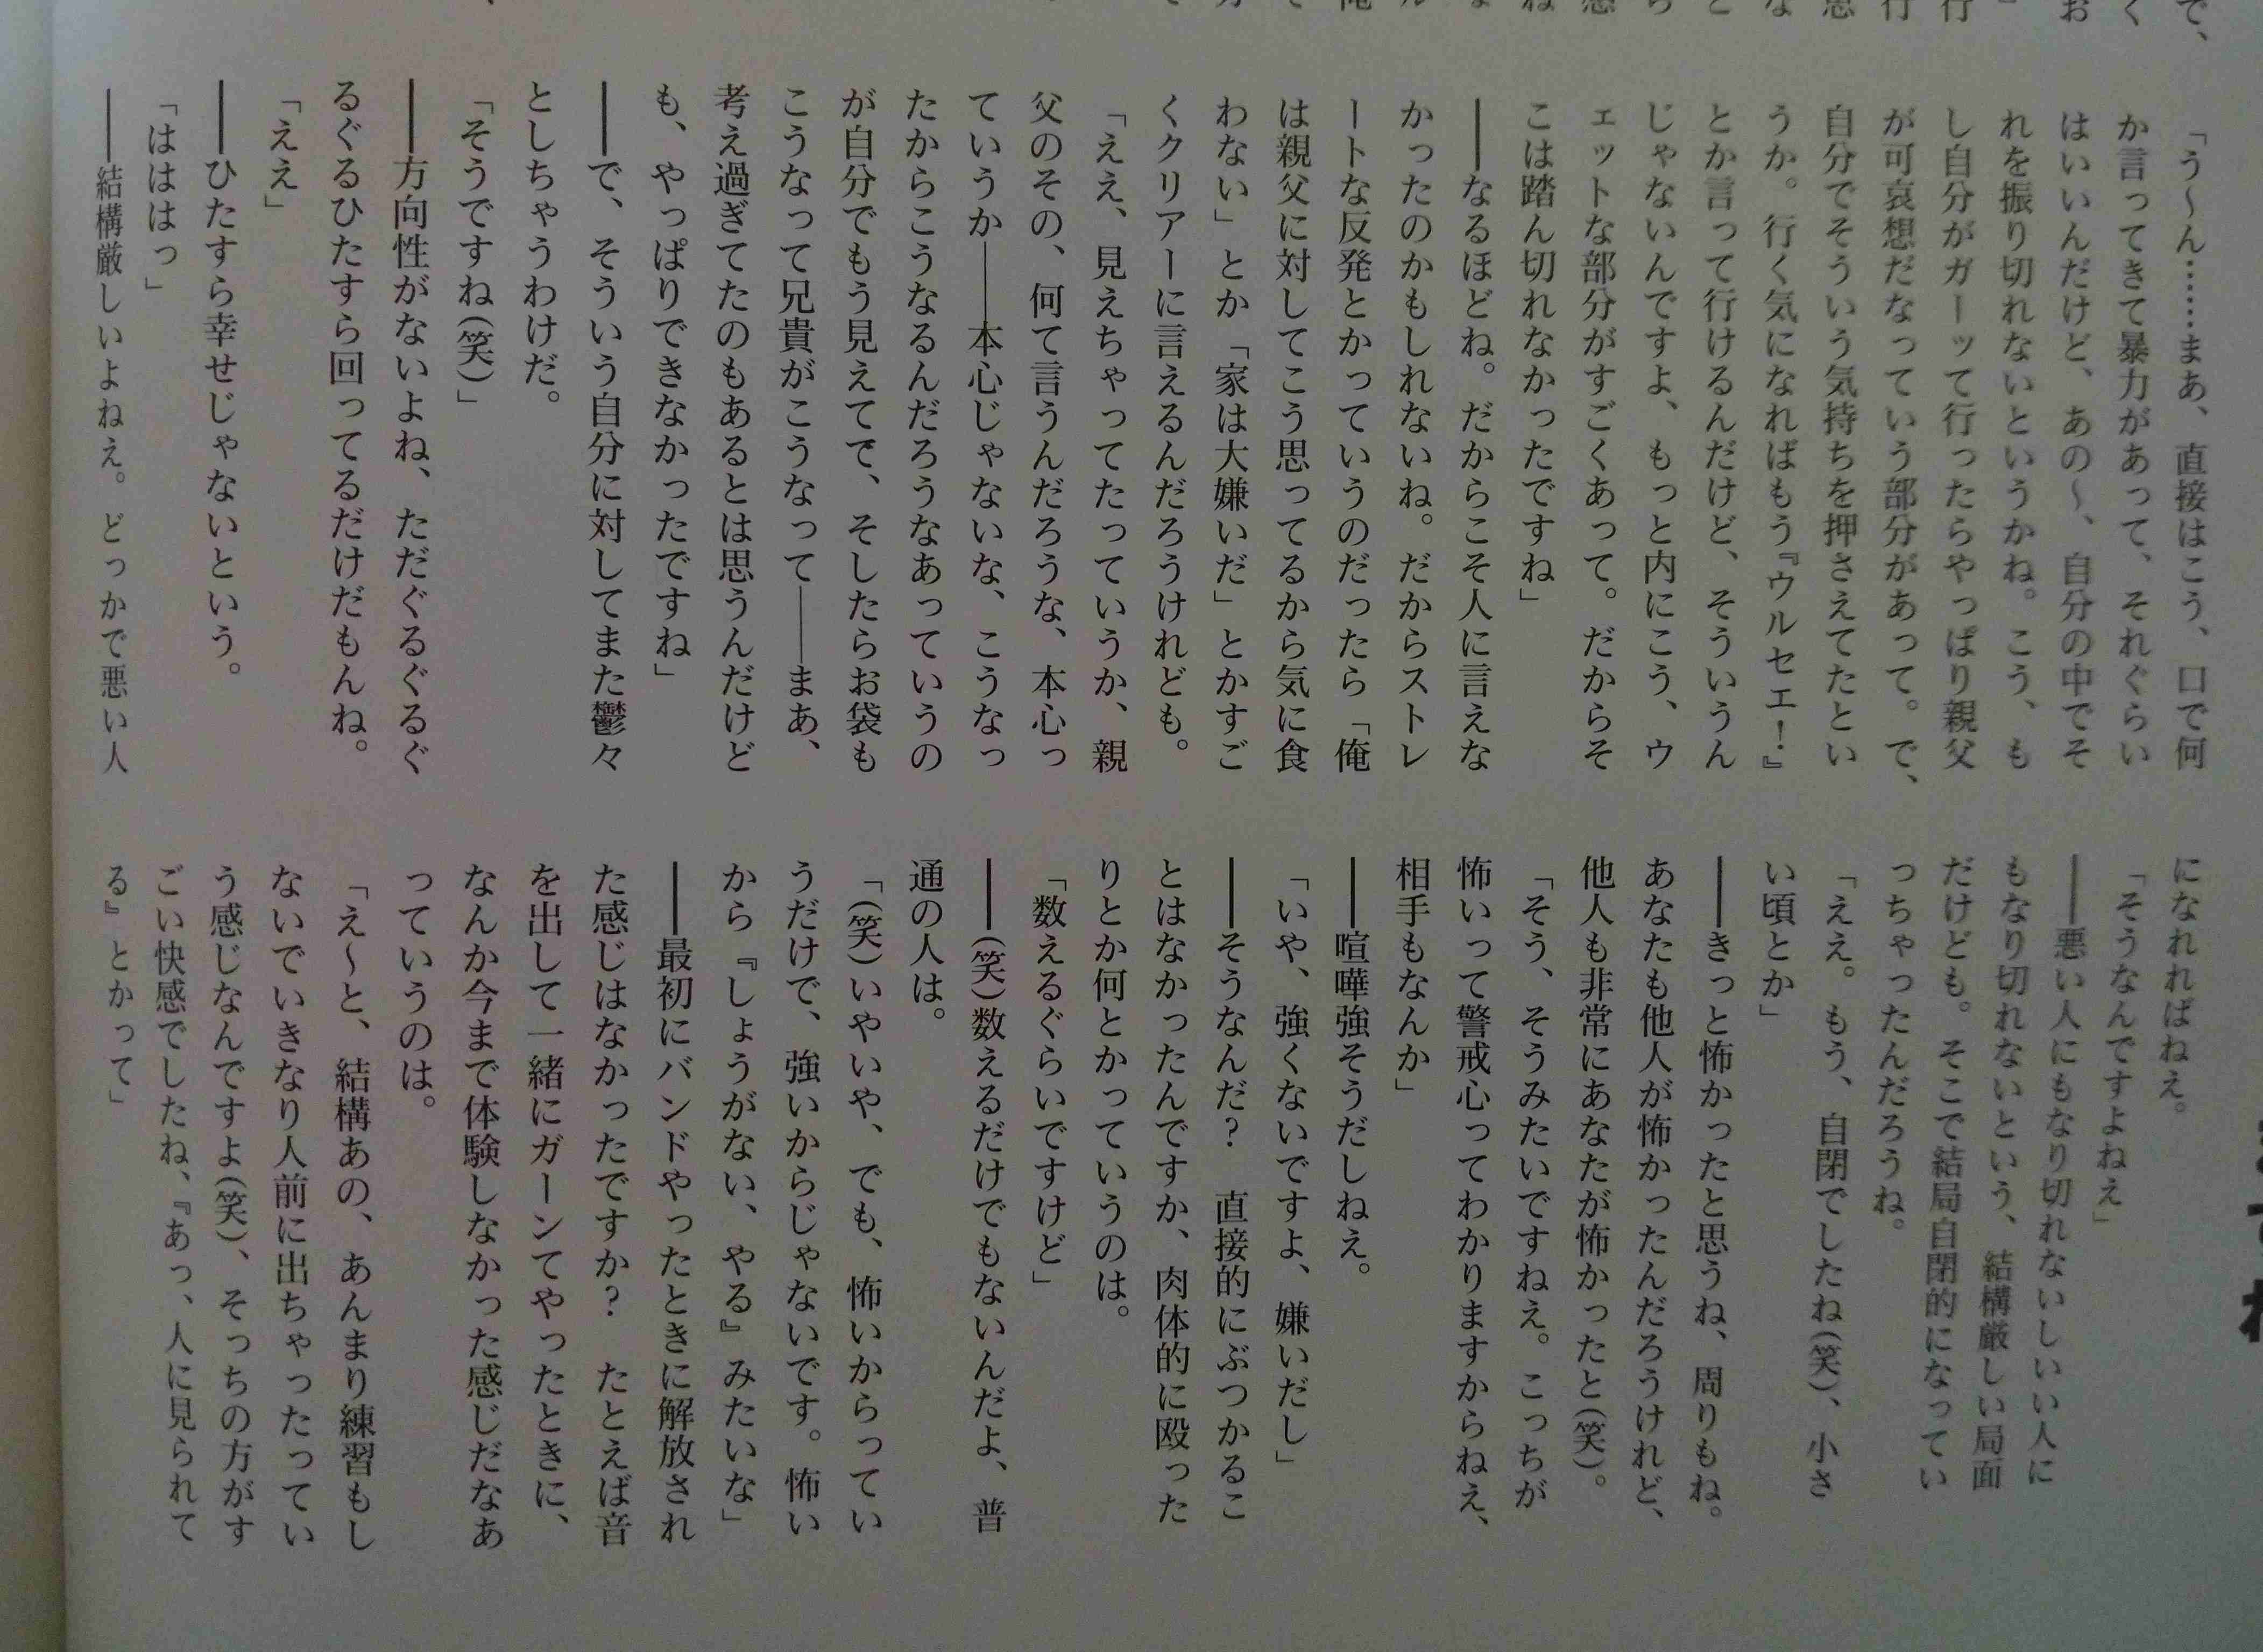 「う〜ん……まあ、直接はこう、口で何
か言ってきて暴力があって、それぐらい
はいいんだけど、あの〜、自分の中でそ
れを振り切れないというかね。こう、も
し自分がガーッて行ったらやっぱり親父
が可哀想だなっていう部分があって。で、
自分でそういう気持ちを押さえてたとい
うか。行く気になればもう『ウルセエ！』
とか言って行けるんだけど、そういうん
じゃないんですよ、もっと内にこう、ウ
ェットな部分がすごくあって。だからそ
こは踏ん切れなかったですね」
――なるほどね。だからこそ人に言えな
かったのかもしれないね。だからストレ
ートな反発とかっていうのだったら「俺
は親父に対してこう思ってるから気に食
わない」とか「家は大嫌いだ」とかすご
くクリアーに言えるんだろうけれども。
「ええ、見えちゃってたっていうか、親
父のその、何て言うんだろうな、本心っ
ていうか――本心じゃないな、こうなっ
たからこうなるんだろうなあっていうの
が自分でもう見えてて、そしたらお袋も
こうなって兄貴がこうなって――まあ、
考え過ぎてたのもあるとは思うんだけど
も、やっぱりできなかったですね」
――で、そういう自分に対してまた鬱々
としちゃうわけだ。
「そうですね(笑)」
――方向性がないよね、ただぐるぐるぐ
るぐるひたすら回ってるだけだもんね。
「ええ」
――ひたすら幸せじゃないという。
「ははは っ」
――結構厳しいよねえ。どっかで悪い人
になれればねえ。
「そうなんですよねえ」
――悪い人にもなり切れないしいい人に
もなり切れないという、結構厳しい局面
だけども。そこで結局自閉的になってい
っちゃったんだろうね。
「ええ。もう、自閉でしたね(笑)、小さ
い頃とか」
――きっと怖かったと思うね、周りもね。
あなたも他人が怖かったんだろうけれど、
他人も非常にあなたが怖かったと(笑)。
「そう、そうみたいですねえ。こっちが
怖いって警戒心ってわかりますからねえ、
相手もなんか」
――喧嘩強そうだしねえ。
「いや、強くないですよ、嫌いだし」
――そうなんだ？　直接的にぶつかるこ
とはなかったんですか、肉体的に殴った
りとか何とかっていうのは。
「数えるぐらいですけど」
――(笑)数えるだけでもないんだよ、普
通の人は。
「(笑)いやいや、でも、怖いからってい
うだけで、強いからじゃないです。怖い
から『しょうがない、やる』みたいな」
――最初にバンドやったときに解放され
た感じはなかったですか？　たとえば音
を出して一緒にガーンてやったときに、
なんか今まで体験しなかった感じだなあ
っていうのは。
「え〜と、結構あの、あんまり練習もし
ないでいきなり人前に出ちゃったってい
う感じなんですよ(笑)、そっちの方がす
ごい快感でしたね、『あっ、人に見られて
る』とかって」